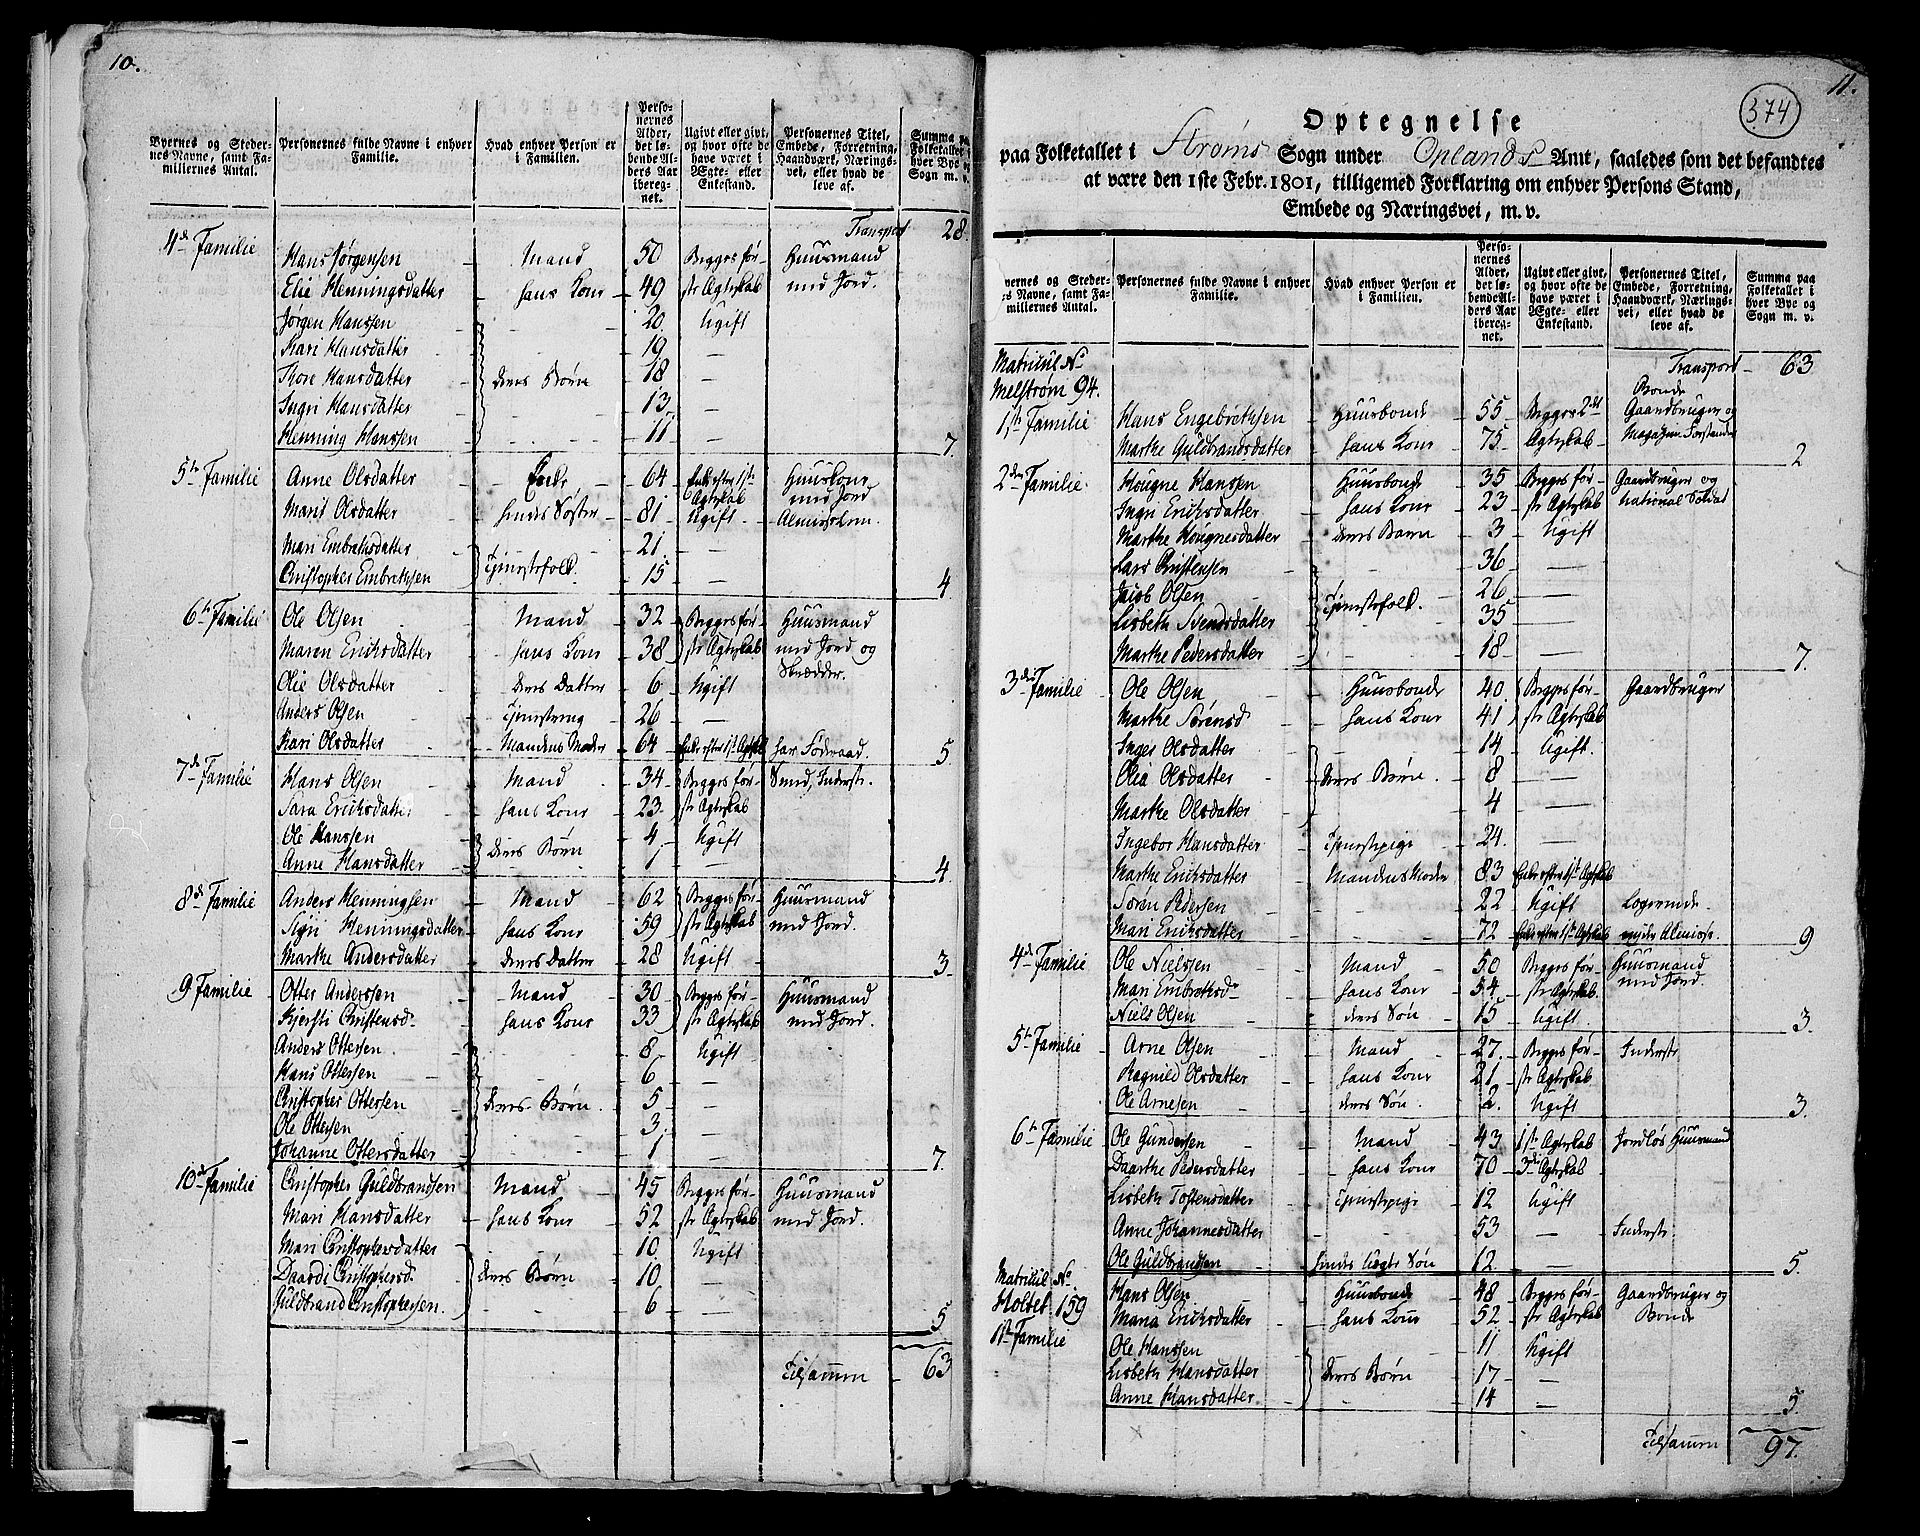 10.
Byernes og Steder-
nes Navne, samt Fa-
miliernes Antal.
Personernes fulde Navne i enhver
Familie.
Hvad enhver Person er
i Familien.
Perso-
nernes
Alder,
det lø-
bende Al-
ders Aar
ibereg-
net.
Ugivt eller givt,
og hvor ofte de
have været i
Ægte- eller
Enkestand.
Personernes Titel,
Embede, Forretning,
Haandværk, Nærings-
vei, eller hvad de
leve af.
Summa pa
Folketallet i
hver Bye og
Sogn m. v.
Transport 28.
4de Familie Hans Jørgensen Mand 50 Begges før- Huusmand
Elie Henningsdatter hans Kone 49 ste Ægteskab med Jord.
Jørgen Hanssen 20 Ugift
Kari Hansdatter 19 —
Thore Hansdatter deres Børn 18 —
Ingri Hansdatter 13 —
Henning Hanssen 11 7.
5te Familie Anne Olsdatter Enke 64 Enke efter 1ste Huuskone
Ægteskab med Jord
Marit Olsdatter hendes Søster 81 Ugift Almisselem.
Mari Embretsdatter 21 —
Christopher Embretsen Tjenestefolk 15 — 4
6te Familie Ole Olsen Mand 32 Begges før- Huusmand
Maren Ericksdatter hans Kone 38 ste Ægteskab med Jord og
Skrædder.
Olie Olsdatter deres Datter 6 Ugift
Anders Olsen Tjenestedreng 26 —
Kari Olsdatter Mandens Moder 64 Enke efter 1st Ægtsk har Føderaad. 5
7de Familie Hans Olsen Mand 34 Begges før- Smed, Inderst.
Sara Ericksdatter hans Kone 23 ste Ægteskab
Ole Hanssen 4 Ugift
Anne Hansdatter deres Børn 1 — 4
8de Familie Anders Henningsen Mand 62 Begges før- Huusmand
Sigri Henningsdatter hans Kone 59 ste Ægteskab med Jord.
Marthe Andersdatter deres Datter 28 Ugift 3.
9 Familie Otter Anderssen Mand 30 Begges før- Huusmand
Kjersti Christensd. hans Kone 33 ste Ægteskab med Jord.
Anders Ottersen 8 Ugift
Hans Ottersen 6 —
Christopher Ottersen deres Børn. 5 —
Ole Ottersen 3 —
Johanne Ottersdatter 1 — 7.
10de Familie Christopher Guldbrandsen Mand 45 Begges før- Huusmand
Mari Hansdatter hans Kone 52 ste Ægteskab med Jord.
Mari Christophersdatter 10 Ugift
Daardi Christophersd. deres Børn 10 —
Guldbrand Christophersen. 6 — 5
Tilsammen 63
11.
374
Optegnelse
paa Folketallet i Strøms Sogn under Oplands Amt, saaledes som det befandtes
at være den 1ste Febr. 1801, tilligemed Forklaring om enhver Persons Stand,
Embede og Næringsvei, m. v.
yernes og Steder-
s Navne, samt Fa-
miliernes Antal.
Personernes fulde Navne i enhver
Familie.
Hvad enhver Person er
i Familien.
Perso-
nernes
Alder,
det lø-
bende Al-
ders Aar
ibereg-
net.
Ugivt eller givt,
og hvor ofte de
have været i
Ægte- eller
Enkestand.
Personernes Titel,
Embede, Forretning,
Haandværk, Nærings-
vei, eller hvad de
leve af.
Summa paa
Folketallet i
hver Bye og
Sogn m. v.
Matricul No Transport 63
Melstrøm 94. Bonde
1ste Familie Hans Engebretsen Huusbonde 55 Begges 2det Gaardbruger og
Marthe Guldbrandsdatter hans Kone 75 Ægteskab Magazin Forstander 2
2den Familie Hougne Hansen Huusbonde 35 Begges før- Gaardbruger og
Ingri Ericksdatter hans Kone 23 ste Ægteskab National Soldat
Marthe Hougnesdatter deres Barn 3 Ugift
Lars Christensen 36 —
Jacob Olsen 26 —
Lisbeth Svendsdatter Tjenestefolk. 35 —
Marthe Pedersdatter 18 — 7.
3die Familie Ole Olsen Huusbonde 40 Begges før- Gaardbruger
Marthe Sørensd hans Kone 41 ste Ægteskab
Inger Olsdatter 14 Ugift.
Olia Olsdatter deres Børn 8 —
Marthe Olsdatter 4 —
Ingebor Hansdatter Tjenestepige 24 —
Marthe Ericksdatter Mandens Moder 83 Enke efter 1st Ægtsk
Søren Pedersen 22 Ugift Logerende.
Mari Ericksdatter 72 Enke efter 1ste Ægtskab nyder Almisse. 9
4de Familie Ole Nielssen Mand 50 Begges før- Huusmand
Mari Embretsdr hans Kone 54 ste Ægteskab. med Jord.
Niels Olsen deres Søn 15 Ugift 3.
5te Familie Arne Olsen Mand 27. Begges før- Inderst.
Ragnild Olsdatter hans Kone 21 ste Ægteskab
Ole Arnesen deres Søn 2. Ugift 3.
6te Familie Ole Gundersen Mand 43 1ste Ægteskab Jordløs Huusmand
Daarthe Pedersdatter hans Kone 70 3die Ægteskab
Lisbeth Tostensdatter Tjenestepige 12 Ugift
Anne Johannesdatter 53 — Inderst.
Ole Guldbrandsen hendes Uægte Søn 12 — 5.
Matricul No
Holtet 159 Hans Olsen Huusbonde 48 Begges før- Gaardbruger og
Maria Ericksdatter hans Kone 52 ste Ægteskab Bonde
1ste Familie
Ole Hanssen 11 Ugift
Lisbeth Hansdatter deres Børn 17 —
Anne Hansdatter 14 — 5.
Tilsammen 97.